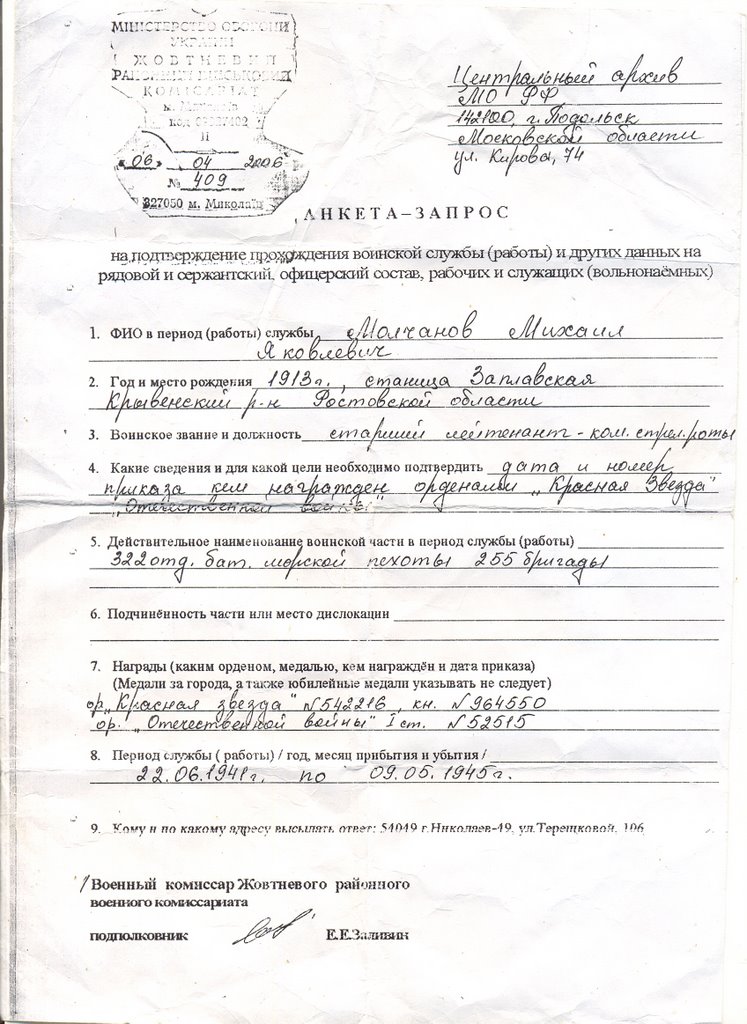 МІНІСТЕРСТВО ОБОРОНИ
УКРАЇНИ
ЖОВТНЕВИЙ
РАЙОННИЙ ВІЙСЬКОВИЙ
КОМІСАРІАТ
м. Миколаїв
код
"06" 04 2006
№ 409
327050 м. Миколаїв
Центральный архив
МО РФ
142100, г. Подольск
Московской области
ул. Кирова, 74
АНКЕТА–ЗАПРОС
на подтверждение прохождения воинской службы (работы) и других данных на
рядовой и сержантский, офицерский состав, рабочих и служащих (вольнонаёмных)
1. ФИО в период (работы) службы Молчанов Михаил
Яковлевич
2. Год и место рождения 1913г., станица Заплавская
Крывенский р-н Ростовской области
3. Воинское звание и должность старший лейтенант - ком. стрел. роты
4. Какие сведения и для какой цели необходимо подтвердить дата и номер
приказа кем награжден орденами „Красная Звезда"
„Отечественной войны"
5. Действительное наименование воинской части в период службы (работы)
322 отд. бат. морской пехоты 255 бригады
6. Подчинённость части или место дислокации
7. Награды (каким орденом, медалью, кем награждён и дата приказа)
(Медали за города, а также юбилейные медали указывать не следует)
ор. „Красная звезда" N 542216, кн. N 964550
ор. „Отечественной войны" I ст. N 52515
8. Период службы ( работы) / год, месяц прибытия и убытия /
22.06.1941г. по 09.05.1945г.
9. Кому и по какому адресу высылать ответ: 54049 г.Николаев-49, ул.Терешковой, 106
/ Военный комиссар Жовтневого районного
военного комиссариата
подполковник Е.Е.Заливик